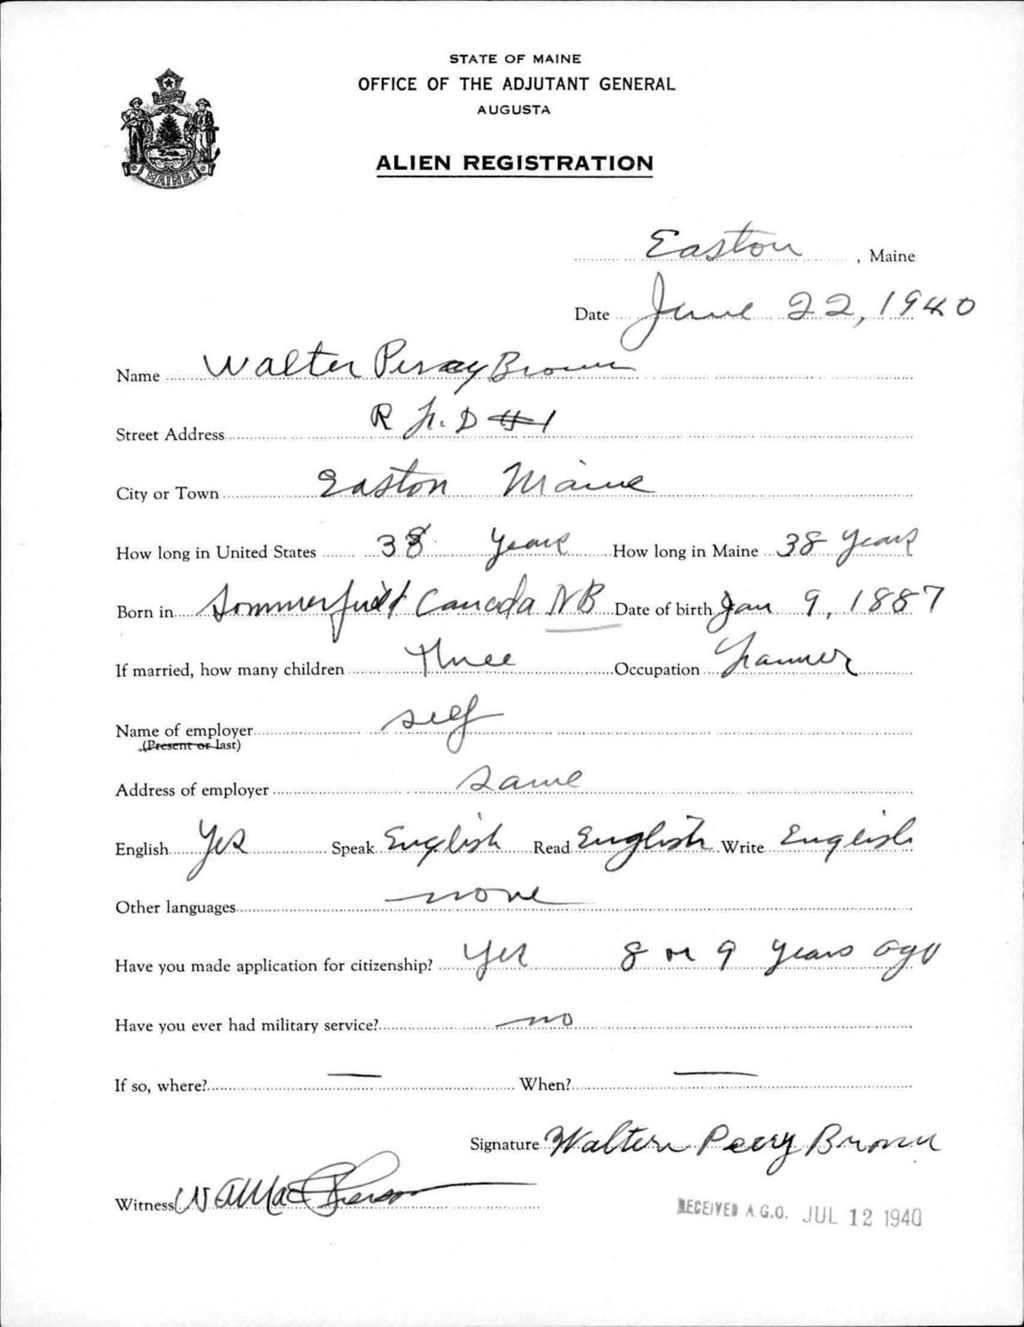 STATE OF MAINE
OFFICE OF THE ADJUTANT GENERAL
AUGUSTA
ALIEN REGISTRATION
MAINE
Easton, Maine
Date June 22, 1940
Name Walter Percy Brown
Street Address R.F.D #1
City or Town Easton Maine
How long in United States 38 years How long in Maine 38 years
Born in Sommerfield Canada NB Date of birth Jan 9, 1887
If married, how many children three Occupation Farmer
Name of employer self
(Present or last)
Address of employer same
English Yes Speak English Read English Write English
Other languages none
Have you made application for citizenship? yes 8 or 9 years ago
Have you ever had military service? no
If so, where? — When? —
Signature Walter Percy Brown
Witness
RECEIVED A.G.O. JUL 12 1940